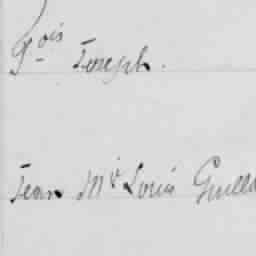 Fois Joseph.
Jean Mie Louis Guille